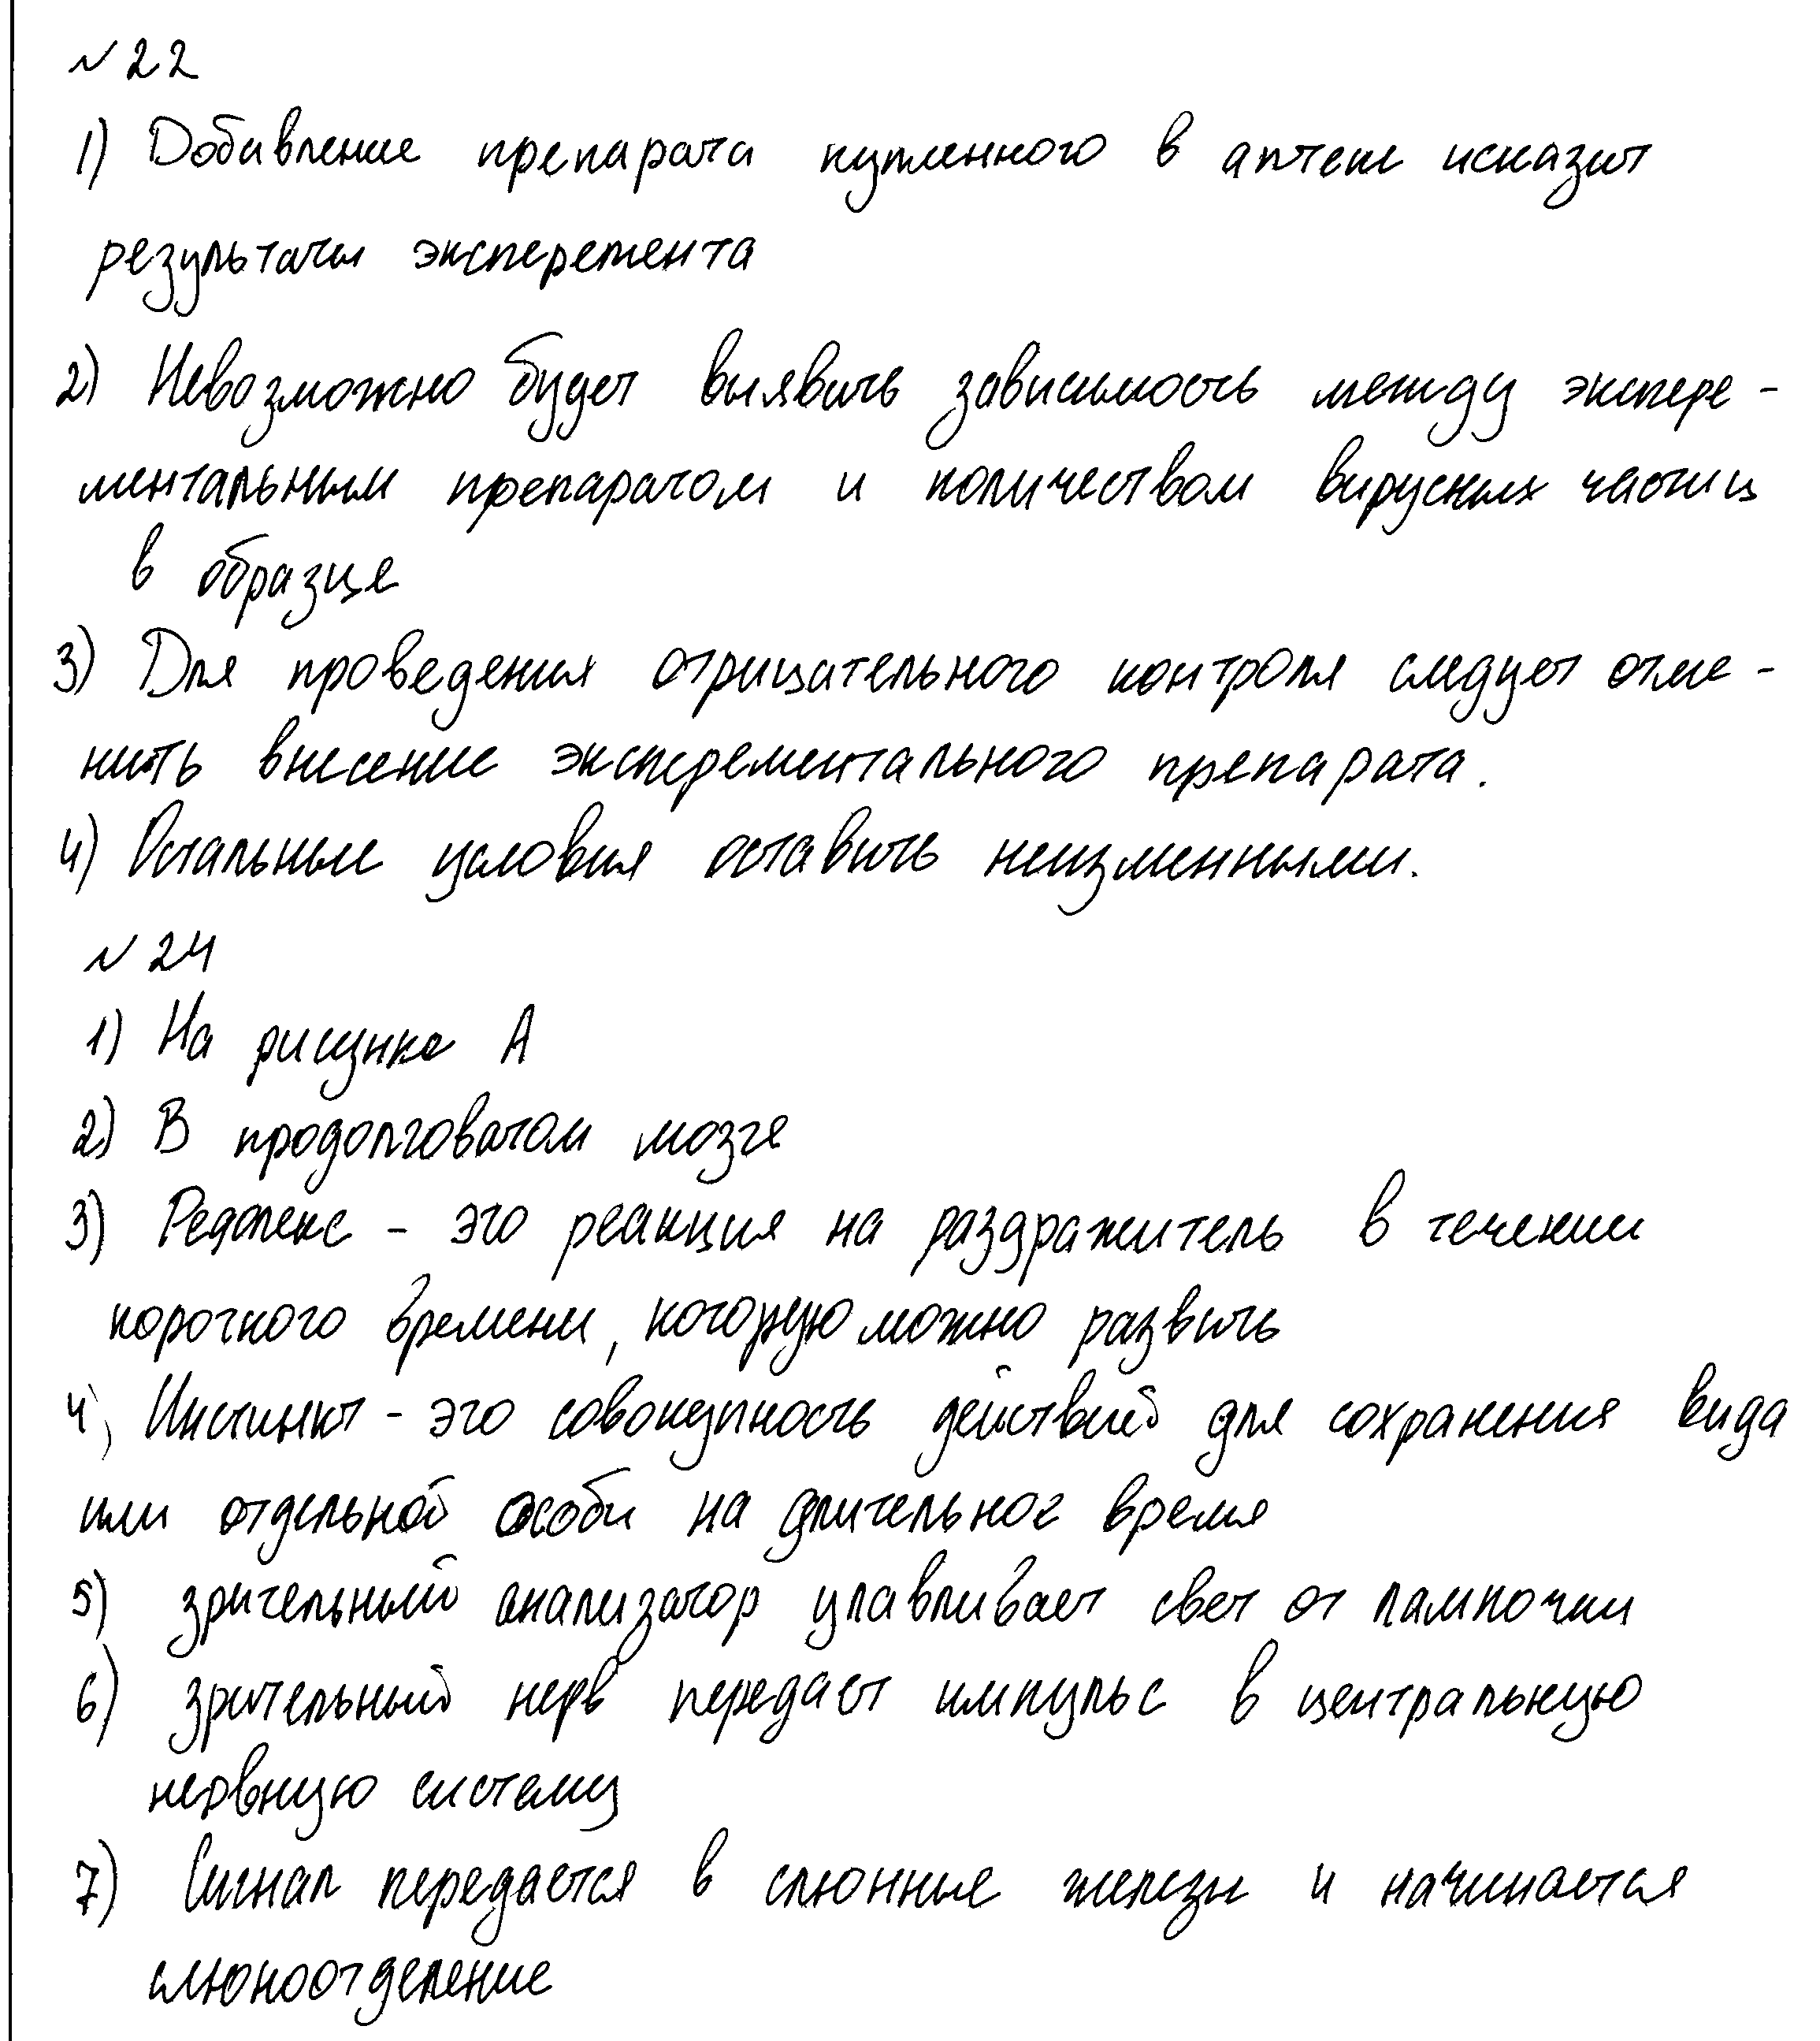 №22
1) Добавление препарата купленного в аптеке исказит
результаты эксперемента
2) Невозможно будет выявить зависимость между экспере-
ментальным препаратом и количеством вирусных частиц
в образце
3) Для проведения отрицательного контроля следует отме-
нить внесение эксперементального препарата.
4) Остальные условия оставить неизменными.
№24
1) На рисунке А
2) В продолговатом мозге
3) Рефлекс - это реакция на раздражитель в течении
короткого времени, которую можно развить
4) Инстинкт - это совокупность действий для сохранения вида
или отдельной особи на длительное время
5) зрительный анализатор улавливает свет от лампочки
6) зрительный нерв передает импульс в центральную
нервную систему
7) Сигнал передается в слюнные железы и начинается
слюноотделение